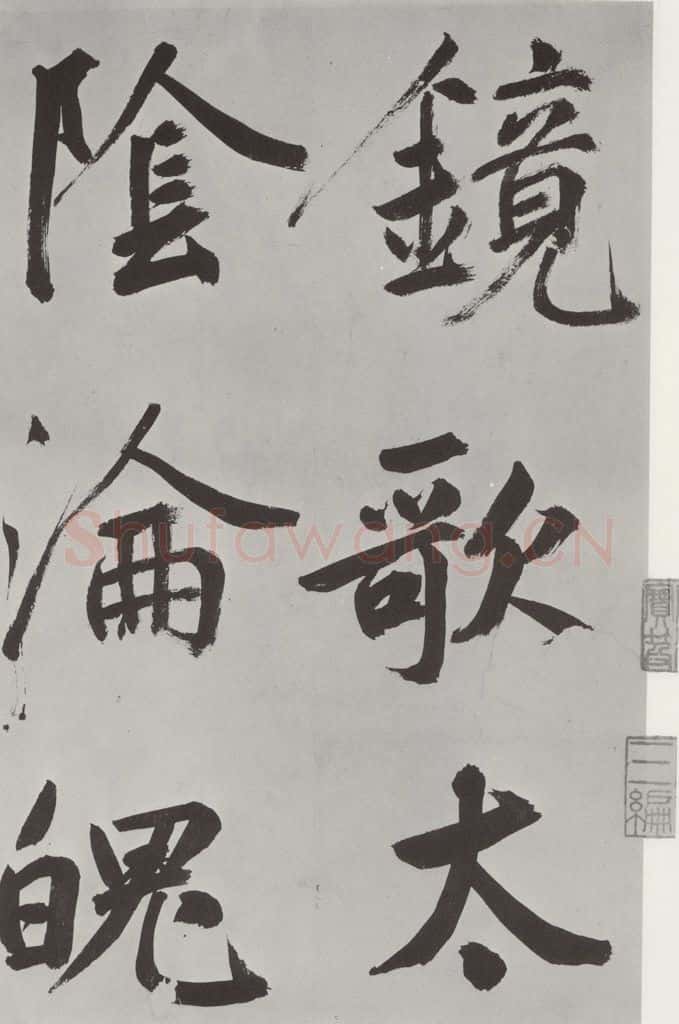 鏡歌太
隂淪魄
寶笈
三編
Shufawang.CN